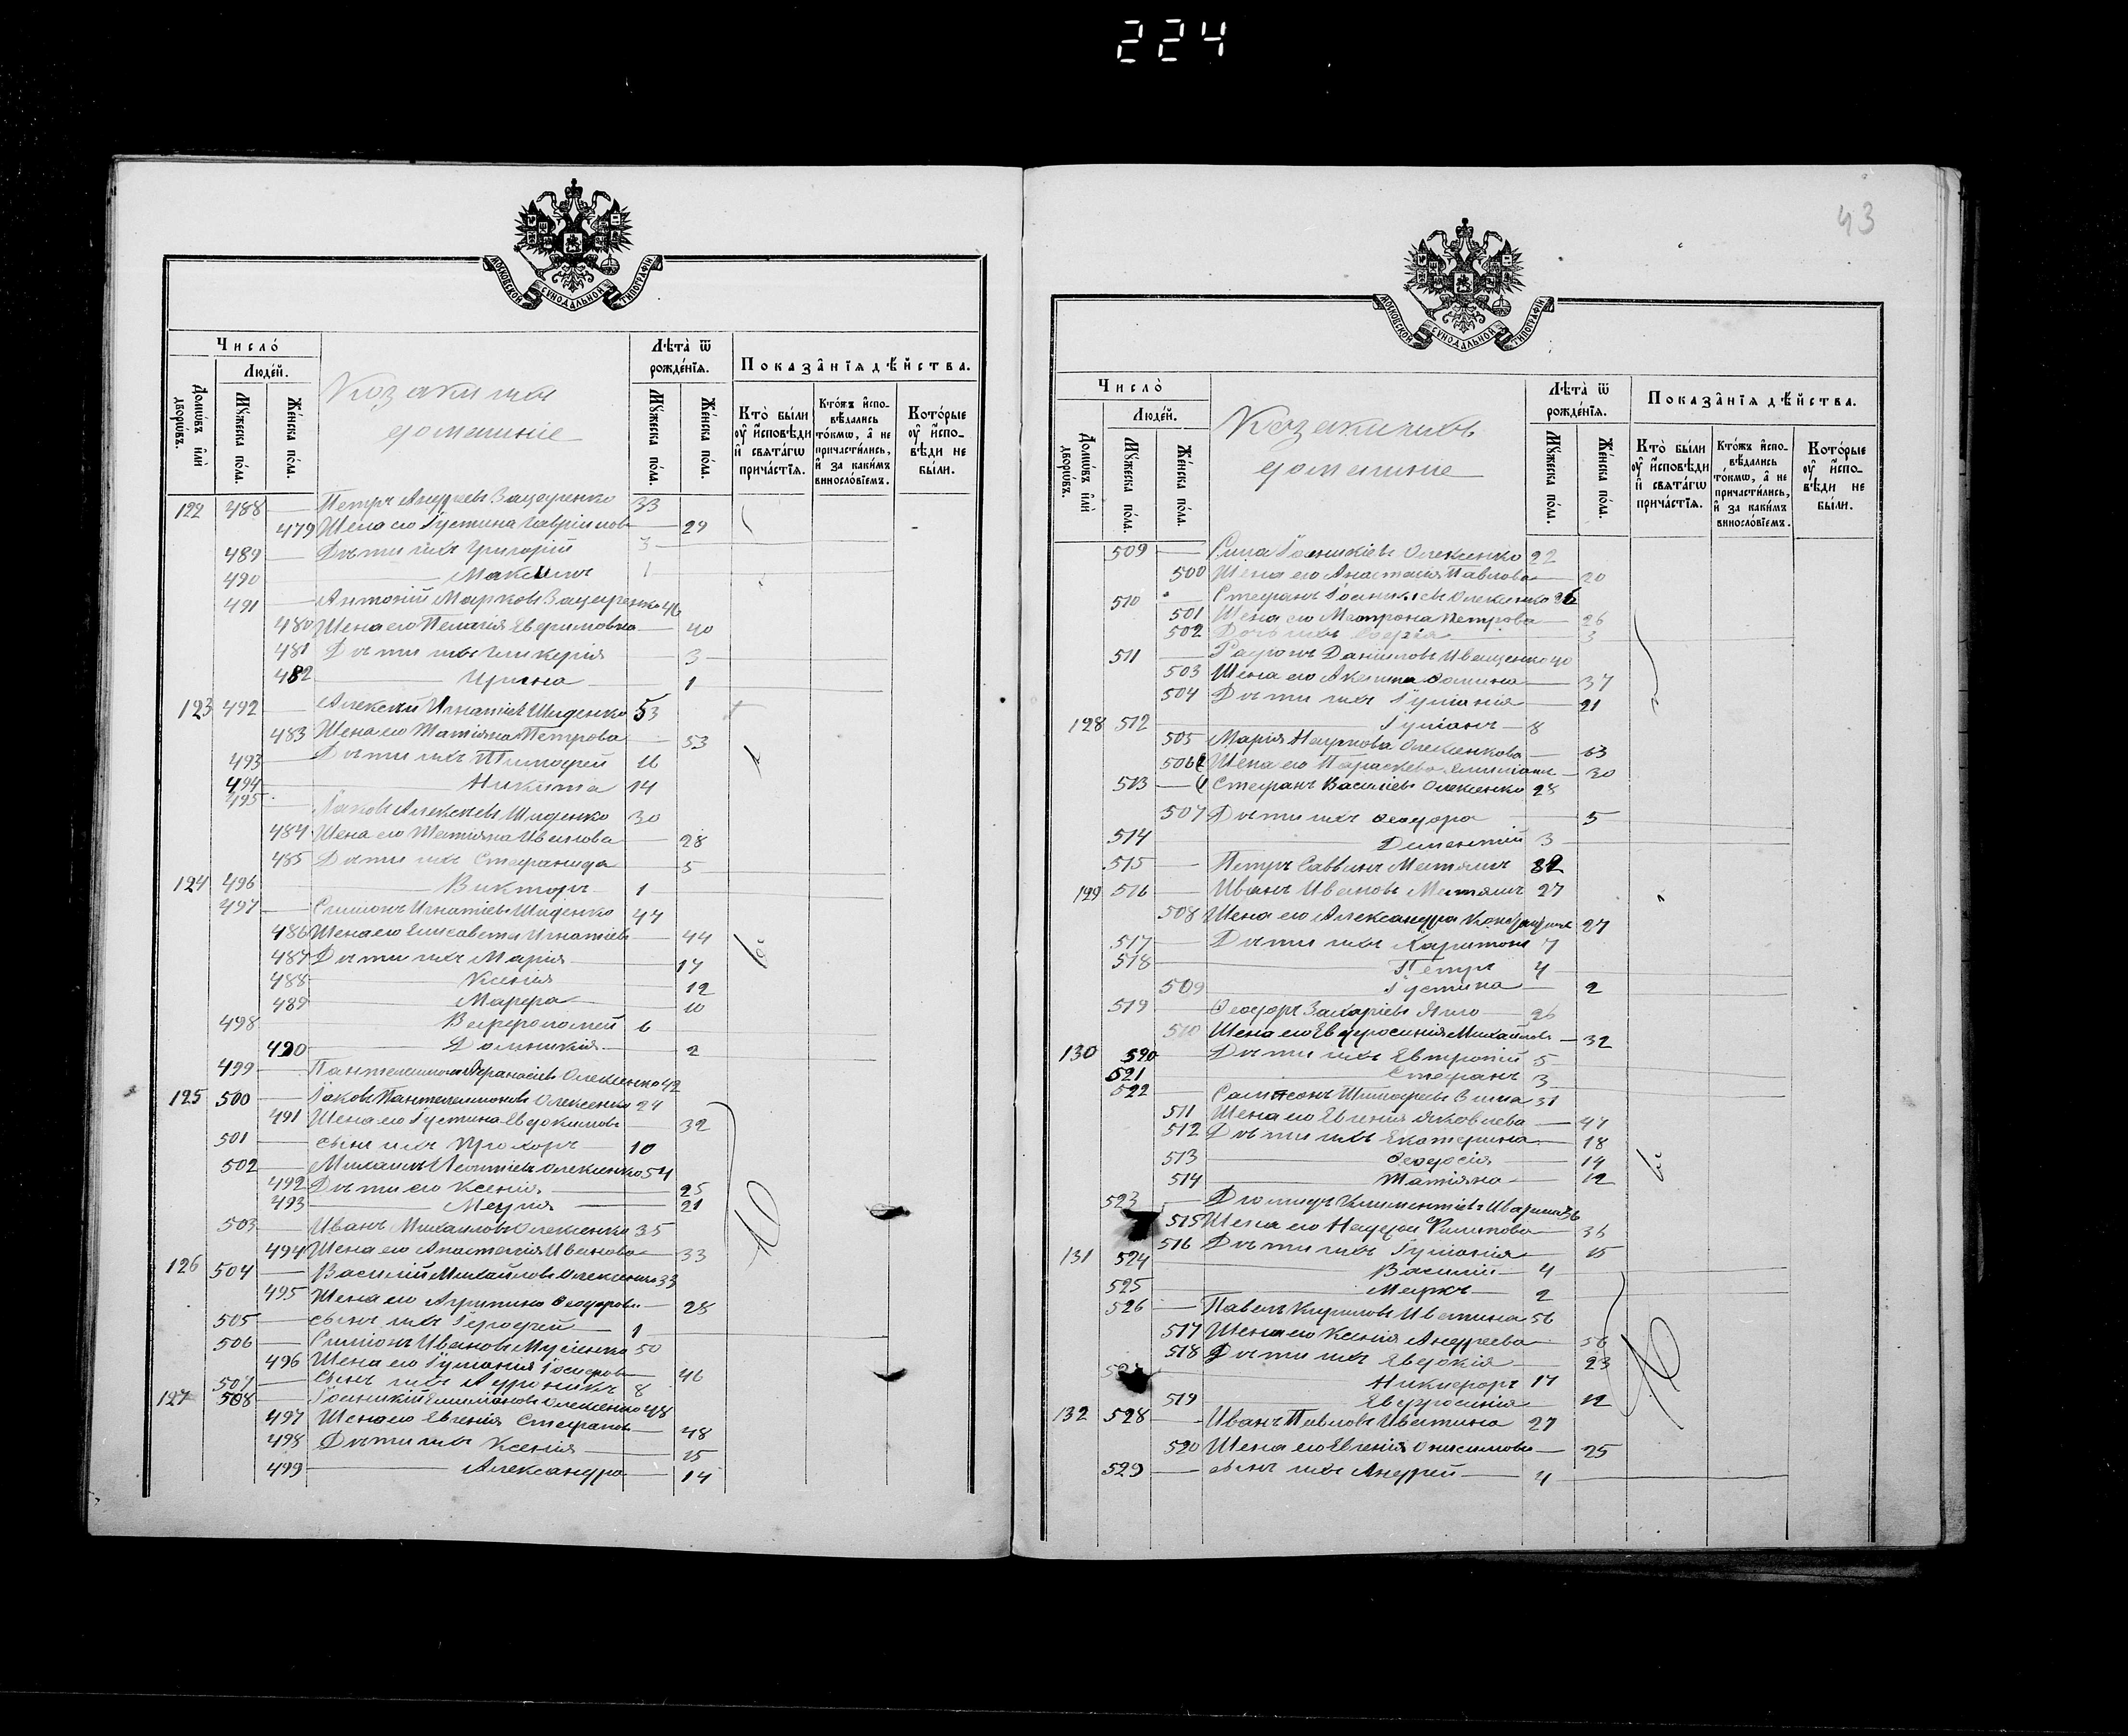 224
МОСКОВСКОЙ СѴНОДАЛЬНОЙ ТИПОГРАФІИ
Число̀
Людéй.
Домѡ́въ и҆лѝ дворѡ́въ.
Мꙋ́жеска по́ла.
Же́нска по́ла.
Козаки ихъ
домашніе
Лѣ́та ѿ рождéнїѧ.
Мꙋ́жеска по́ла.
Же́нска по́ла.
Показа̂нїѧ дѣ́йства.
Кто̀ бы́ли оу҆ и҆сповѣ́ди и҆ свѧта́гѡ прича́стїѧ.
Кто́жъ и҆спо-вѣ́дались то́кмѡ, а҆ не причасти́лись, и҆ за каки́мъ винослóвїемъ.
Кото́рые оу҆ и҆спо-вѣ́ди не бы́ли.
122 488 Петръ Андреевъ Зацаренко 33
479 Жена его Густина Гавріилова 29
489 Дѣти ихъ Григорій 3
490 Максимъ 1
491 Антоній Марковъ Зацаренко 46
480 Жена его Пелагія Евфимовна 40
481 Дѣти ихъ Гликерія 3
482 Ирина 1
123 492 Алексѣй Игнатіевъ Шиденко 53
483 Жена его Татіана Петрова 53
493 Дѣти ихъ Тимофей 16
494 Никита 14
495 Іаковъ Алексѣевъ Шиденко 30
484 Жена его Татіана Иванова 28
485 Дѣти ихъ Стефанида 5
124 496 Викторъ 1
497 Симіонъ Игнатіевъ Шиденко 44
486 Жена его Елисавета Игнатіева 44
487 Дѣти ихъ Марія 17
488 Ксенія 12
489 Марфа 10
498 Варфоломей 6
490 Домникія 2
499 Пантелеимонъ Афанасіевъ Олексенко 42
125 500 Іаковъ Пантелеимоновъ Олексенко 24
491 Жена его Густина Евдокимова 32
501 сынъ ихъ Прохоръ 10
502 Михаилъ Леонтіевъ Олексенко 54
492 Дѣти его Ксенія 25
493 Марія 21
503 Иванъ Михаиловъ Олексенко 35
494 Жена его Анастасія Иванова 33
126 504 Василій Михайловъ Олексенко 33
495 Жена его Агрипина Феодорова 28
505 сынъ ихъ Герофей 1
506 Симіонъ Ивановъ 50
496 Жена его Іуліанія 46
507 сынъ ихъ Андроникъ 8
127 508 Іоаникій Емиліановъ Олексенко 48
497 Жена его Евгенія Стефанова 48
498 Дѣти ихъ Ксенія 15
499 Александра 14
43
МОСКОВСКОЙ СѴНОДАЛЬНОЙ ТИПОГРАФІИ
Число̀
Людéй.
Домѡ́въ и҆лѝ дворѡ́въ.
Мꙋ́жеска по́ла.
Же́нска по́ла.
Козаки ихъ
домашніе
Лѣ́та ѿ рождéнїѧ.
Мꙋ́жеска по́ла.
Же́нска по́ла.
Показа̂нїѧ дѣ́йства.
Кто̀ бы́ли оу҆ и҆сповѣ́ди и҆ свѧта́гѡ прича́стїѧ.
Кто́жъ и҆спо-вѣ́дались то́кмѡ, а҆ не причасти́лись, и҆ за каки́мъ винослóвїемъ.
Кото́рые оу҆ и҆спо-вѣ́ди не бы́ли.
509 Сила Іоаникіевъ Олексенко 22
500 Жена его Анастасія Павлова 20
510 Стефанъ Іоаникіевъ Олексенко 26
501 Жена его Матрона Петрова 26
502 Дочь ихъ Софія 3
511 Родіонъ Даніиловъ Иващенко 40
503 Жена его Акилина Фомина 37
504 Дѣти ихъ Іуліанія 21
128 512 Іуліанъ 8
505 Марія Наумова Олексенкова 63
506 Жена его Параскева 30
513 Стефанъ Василіевъ Олексенко 28
507 Дѣти ихъ Феодора 5
514 Дементій 3
515 Петръ Саввинъ Матяшъ 32
129 516 Иванъ Ивановъ Матяшъ 27
508 Жена его Александра 27
517 Дѣти ихъ Харитонъ 7
518 Петръ 4
509 Густина 2
519 Феодоръ Захаріевъ 26
510 Жена его Евфросинія Михайлова 32
130 520 Дѣти ихъ Евтропій 5
521 Стефанъ 3
522 Сампсонъ Тимофеевъ 51
511 Жена его Евгенія Яковлева 47
512 Дѣти ихъ Екатерина 18
513 Феодосія 14
514 Татіана 12
523 Діомидъ Климентіевъ 36
515 Жена его Филипова 36
516 Дѣти ихъ Іуліанія 15
131 524 Василій 4
525 Маркъ 2
526 Павелъ Кириловъ Иватина 56
517 Жена его Ксенія Андреева 56
518 Дѣти ихъ Евдокія 23
Никифоръ 17
519 Евфросинія 12
132 528 Иванъ Павловъ Иватина 27
520 Жена его Евгенія Онисимова 25
529 сынъ ихъ Андрей 4